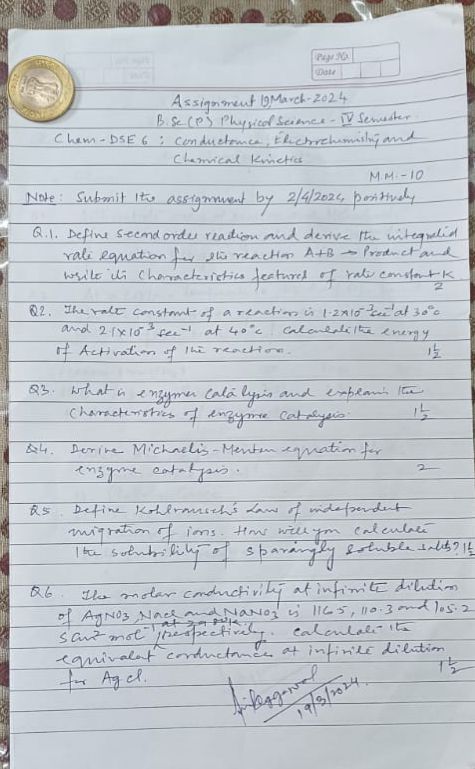 Page No.
Date
Assignment 19, March-2024
B.Sc (P) Physical Science - IV Semester
Chem-DSE 6 : Conductance, Electrochemistry and
Chemical Kinetics
M.M.-10
Note: Submit the assignment by 2/4/2024 positively
Q.1. Define second order reaction and derive the integrated
rate equation for the reaction A+B → Product and
write its characteristics features of rate constant K
2
Q2. The rate constant of a reaction is 1.2x10⁻³ sec⁻¹ at 30°c
and 2.1x10⁻³ sec⁻¹ at 40°c calculate the energy
of Activation of the reaction. 1½
Q3. What is enzymes catalysis and explain the
characteristics of enzyme catalysis. 1½
Q4. Derive Michaelis-Menten equation for
enzyme catalysis. 2
Q5. Define Kohlrausch's Law of independent
migration of ions. How will you calculate
the solubility of sparangly soluble salts? 1½
Q6. The molar conductivity at infinite dilution
of AgNO3, NaCl and NaNO3 is 116.5, 110.3 and 105.2
Scm² mol⁻¹ at respectively. calculate the
equivalent conductances at infinite dilution
for Agcl. 1½
19/3/2024